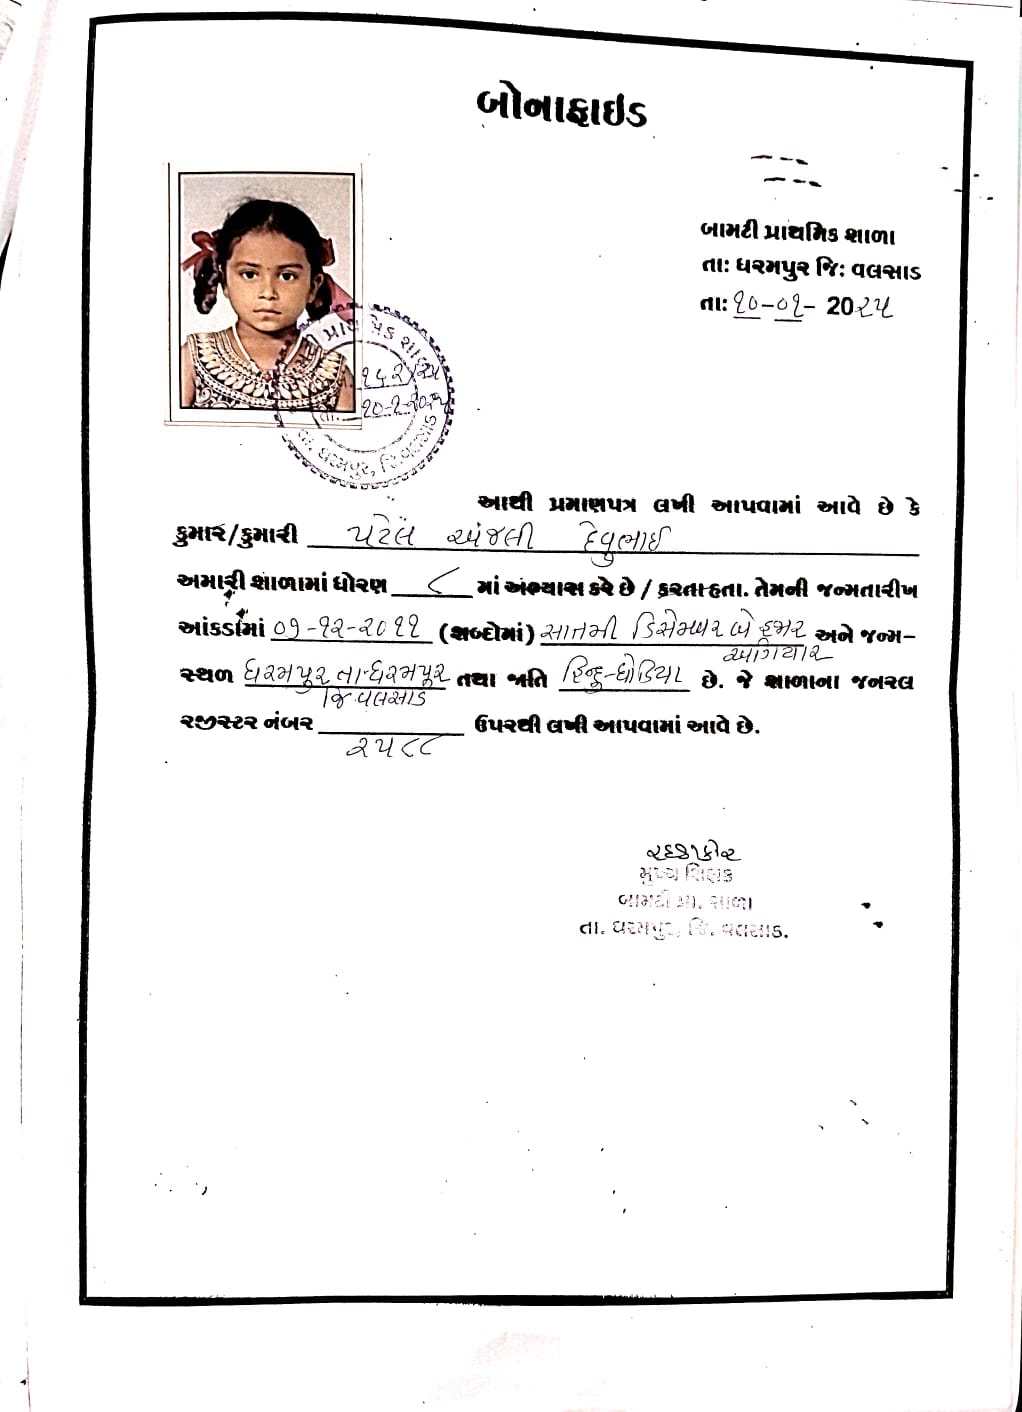 બોનાફાઇડ
બામટી પ્રાથમિક શાળા
તા: ધરમપુર જિ: વલસાડ
તા: ૧૦-૦૧- 20૨૫
૧૫૨/૨૫
તા. ૧૦-૧-૨૦૨૫
તા. ધરમપુર, જિ.વલસાડ
આથી પ્રમાણપત્ર લખી આપવામાં આવે છે કે
કુમાર/કુમારી પટેલ અંજલી દેવુભાઈ
અમારી શાળામાં ધોરણ ૮ માં અભ્યાસ કરે છે / કરતા હતા. તેમની જન્મતારીખ
આંકડામાં ૦૭-૧૨-૨૦૧૧ (શબ્દોમાં) સાતમી ડિસેમ્બર બે હજાર અને જન્મ-
અગિયાર
સ્થળ ધરમપુર તા-ધરમપુર તથા જાતિ હિન્દુ-ધોડિયા છે. જે શાળાના જનરલ
જિ વલસાડ
રજીસ્ટર નંબર ઉપરથી લખી આપવામાં આવે છે.
૨૫૮૮
મુખ્ય શિક્ષક
બામટી પ્રા. શાળા
તા. ધરમપુર, જિ. વલસાડ.